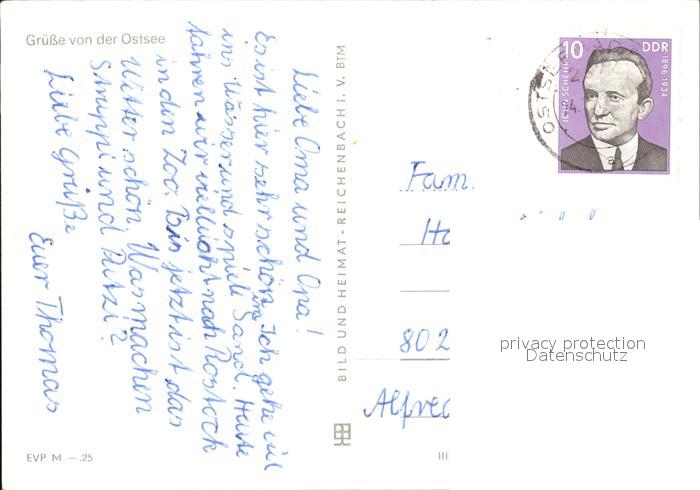 Grüße von der Ostsee
Liebe Oma und Opa!
Es ist hier sehr schön. Ich gehe viel
ins Wasser und spiele im Sand. Heute
fahren wir vielleicht nach Rostock
in den Zoo. Bis jetzt ist das
Wetter schön. Was machen
Struppi und Putzi?
Liebe Grüße
Euer Thomas
EVP M —.25
BILD UND HEIMAT · REICHENBACH i. V. BTM
10 DDR
JOHN SCHEHR
1896-1934
OSTSEE
Fam.
Ho
802
Alfred
III
privacy protection
Datenschutz